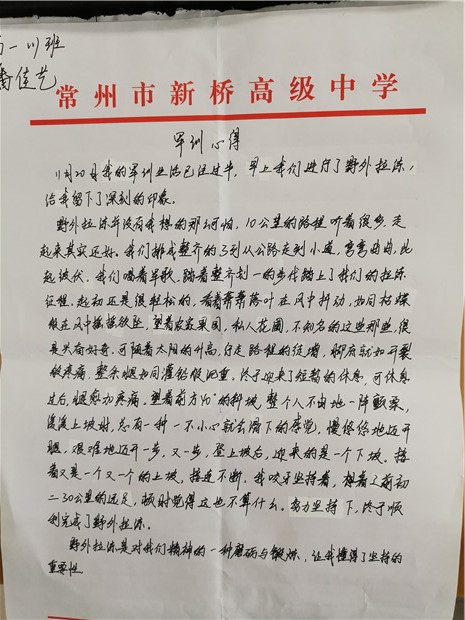 高一川班
乔佳艺
常州市新桥高级中学
军训心得
11月30日我的军训生活已过半,早上我们进行了野外拉练,
给我留下了深刻的印象。
野外拉练并没有我想的那么可怕,10公里的路程听着很多,走
起来其实还好。我们排成整齐的3列从公路走到小道,弯弯曲曲,此
起彼伏。我们唱着军歌,踏着整齐划一的步伐踏上了我们的拉练
征程。起初还是很轻松的,看着萧萧落叶在风中抖动,如同枯蝶
般在风中摇摇欲坠,望着农家果园,私人花圃,不知名的这些那些,很
是兴奋好奇。可随着太阳的升高,行走路程的徒增,脚底就如开裂
般疼痛,整条腿如同灌铅般沉重。终于迎来了短暂的休息,可休息
过后,腿愈加疼痛。望着前方40°的斜坡,整个人不由地一阵颤栗,
缓缓上坡时,总有一种一不小心就会滑下的感觉,慢悠悠地迈开
腿,艰难地迈开一步,又一步,登上坡后,迎来的是一个下坡。接
着又是一个又一个的上坡,接连不断。我咬牙坚持着,想着之前初
二30公里的远足,顿时觉得这也不算什么。努力坚持下,终于顺
利完成了野外拉练。
野外拉练是对我们精神的一种磨砺与锻炼,让我懂得了坚持的
重要性